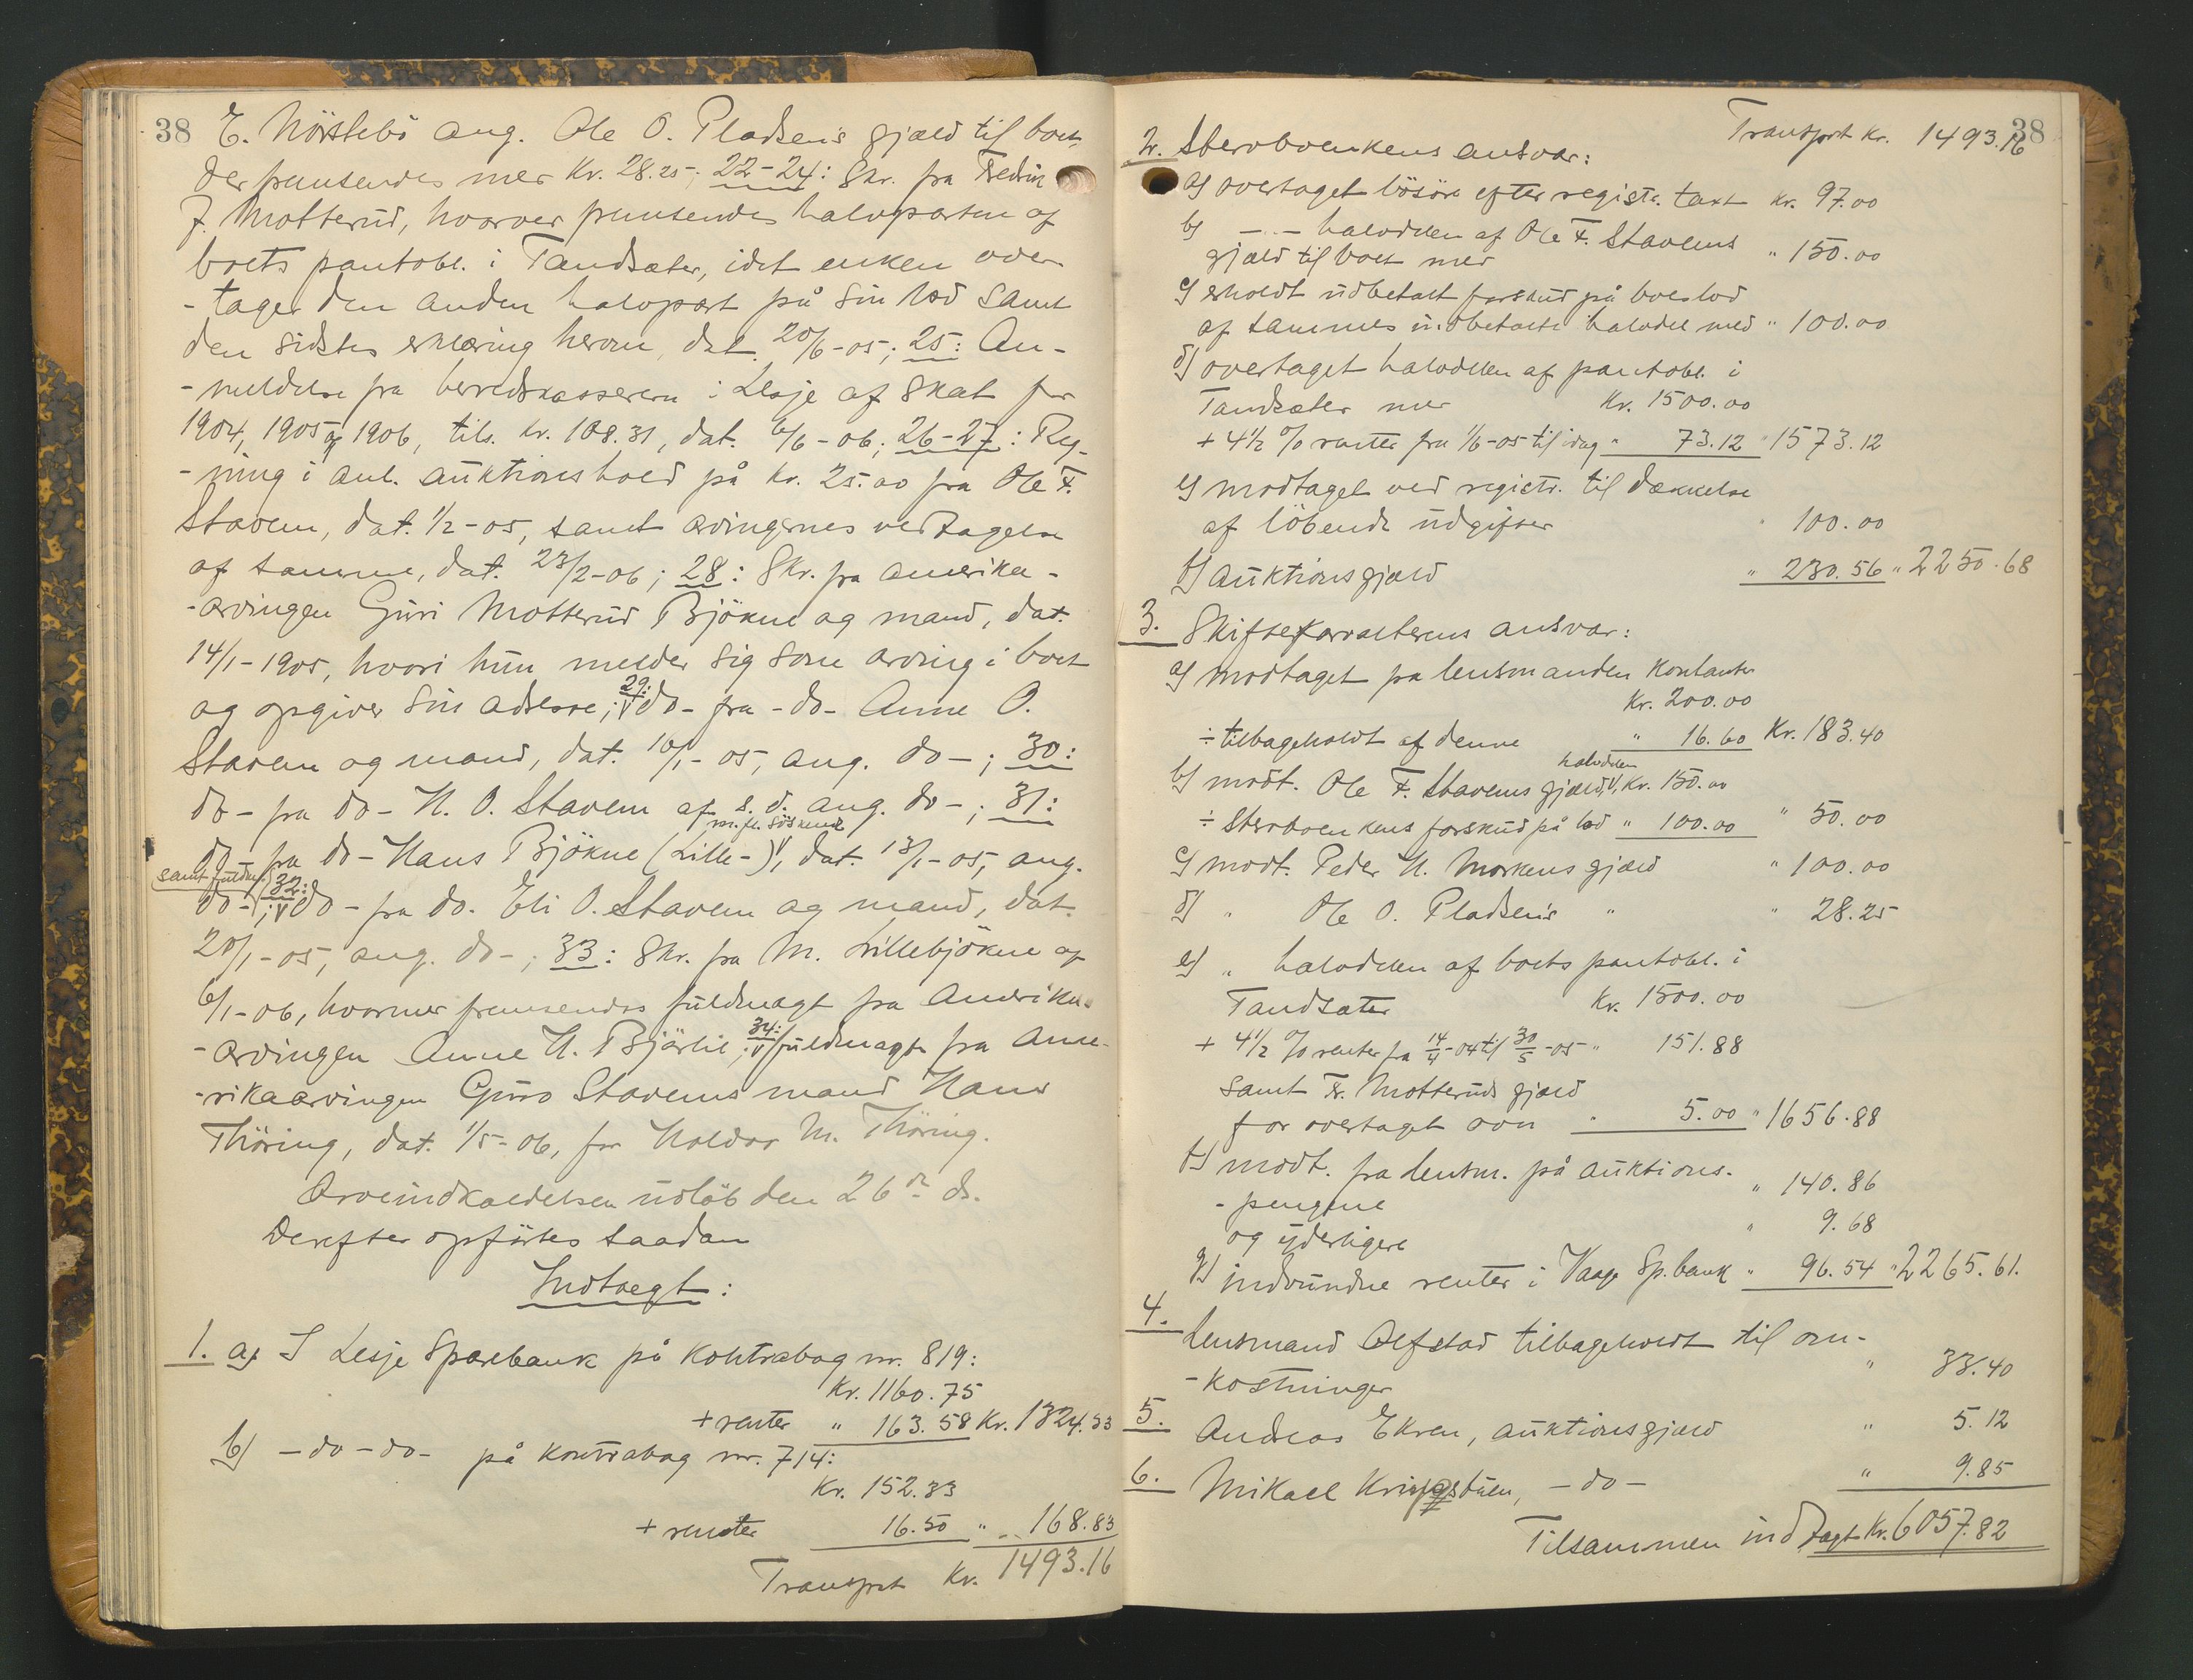 38 E. Nörstebö ang. Ole O. Pladsens gjæld til boet,
der fremsendes med Kr. 28.25; 22-24: Skr. fra Fredrik
J. Motterud, hvorved fremsendes halvparten af
boets pantobl. i Tandsæter, idet enken over-
-tager den anden halvpart på sin lod samt
den sidstes erklæring herom, dat. 20/6-05; 25: An-
-meldelse fra herredskassereren i Lesje af skat for
1904, 1905 og 1906, tils. kr. 108.31, dat. 6/6-06; 26-27: Reg-
-ning i anl. auktionshold på kr. 25.00 fra Ole F.
Stavem, dat. 1/2-05, samt arvingernes vedtagelse
af samme, dat. 23/2-06; 28: Skr. fra amerika-
-arvingen Guri Motterud Bjökne og mand, dat.
14/1-1905, hvori hun melder sig som arving i boet
og opgiver sin adresse; 29: do- fra -do- Anne O.
Stavem og mand, dat. 10/1-05, ang. do-; 30:
do- fra do- H. O. Stavem af s. d. ang. do-; 31:
do- fra do- Hans Bjökne (Lille-) m. fl. söskende, dat. 13/1-05, ang.
do- samt fuldm.; 32: do- fra do. Eli O. Stavem og mand, dat.
20/1-05, ang. do-; 33: Skr. fra M. Lillebjökne af
6/1-06, hvormed fremsendes fuldmagt fra Amerika-
-arvingen Anne H. Bjørlie; 34: fuldmagt fra Ame-
-rikaarvingen Guro Stavems mand Hans
Thöring, dat. 1/5-06, for Haldor M. Thöring.
Arveindkaldelsen udløb den 26de ds.
Derefter opførtes saadan
Indtægt:
1. a) I Lesje Sparebank på kontrabog nr. 819:
Kr. 1160.75
+ renter " 163.58 Kr. 1324.33
b) -do-do- på kontrabog nr. 714:
Kr. 152.33
+ renter 16.50 " 168.83
Transport Kr. 1493.16
38
Transport Kr. 1493.16
2. Stervboenkens ansvar:
a) overtaget lösöre efter registr. taxt Kr. 97.00
b) -"- halvdelen af Ole F. Stavems
gjæld til boet med " 150.00
c) erholdt udbetalt forskud på boslod
af sammes indbetalte halvdel med " 100.00
d) overtaget halvdelen af pantobl. i
Tandsæter med Kr. 1500.00
+ 4½ % renter fra 1/6-05 til idag " 73.12 " 1573.12
e) modtaget ved registr. til dækkelse
af löbende udgifter " 100.00
f) auktionsgjæld " 230.56 " 2250.68
3. Skifteforvalterens ansvar:
a) modtaget fra lensmanden kontanter
Kr. 200.00
÷ tilbageholdt af denne " 16.60 Kr. 183.40
b) modt. halvdelen Ole F. Stavems gjæld, Kr. 150.00
÷ Stervboenkens forskud på lod " 100.00 " 50.00
c) modt. Peder H. Morkens gjæld " 100.00
d) " Ole O. Pladsens " " 28.25
e) " halvdelen af boets pantobl. i
Tandsæter Kr. 1500.00
+ 4½ % renter fra 14/4-04 til 30/5-05 " 151.88
samt Fr. Motteruds gjæld
for overtaget ovn " 5.00 " 1656.88
f) modt. fra lensm. på auktions-
-pengene " 140.86
og yderligere " 9.68
g) indvundne renter i Vaage Sp.bank " 96.54 " 2265.61.
4. Lensmand Alfstad tilbageholdt til om-
-kostninger " 33.40
5. Andreas Ekren, auktionsgjæld " 5.12
6. Mikael Kringstuen, -do- " 9.85
Tilsammen indtægt Kr. 6057.82